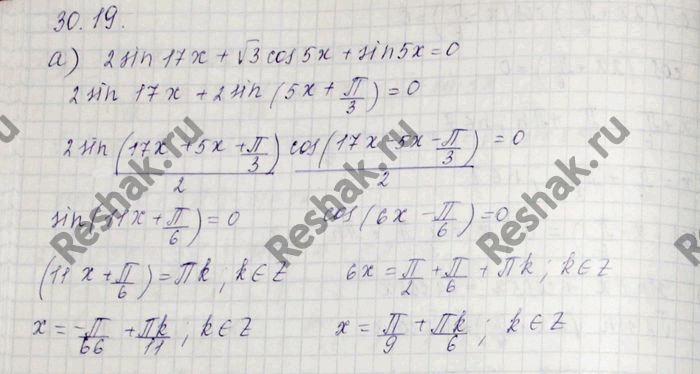 30.19.
а) 2sin 17x + √3 cos 5x + sin 5x = 0
2 sin 17x + 2 sin (5x + π/3) = 0
2 sin (17x + 5x + π/3)/2 cos (17x - 5x - π/3)/2 = 0
sin(11x + π/6) = 0 cos(6x - π/6) = 0
(11x + π/6) = πk; k∈Z 6x = π/2 + π/6 + πk; k∈Z
x = -π/66 + πk/11; k∈Z x = π/9 + πk/6; k∈Z
Reshak.ru
Reshak.ru
Reshak.ru
Reshak.ru